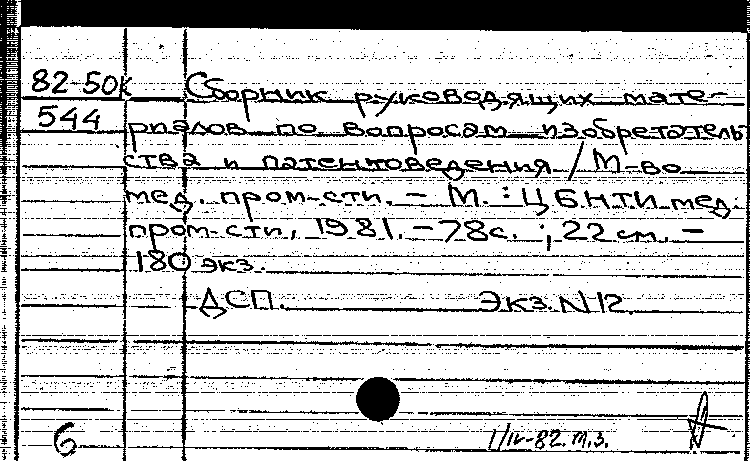 82-50к Сборник руководящих мате-
544 риалов по вопросам изобретатель
ства и патентоведения / М-во
мед. пром-сти. – М. : ЦБНТИ мед.
пром-сти, 1981. – 78с. ; 22 см. –
180 экз.
ДСП. Экз. N 12.
6 1/IV-82. м.з.